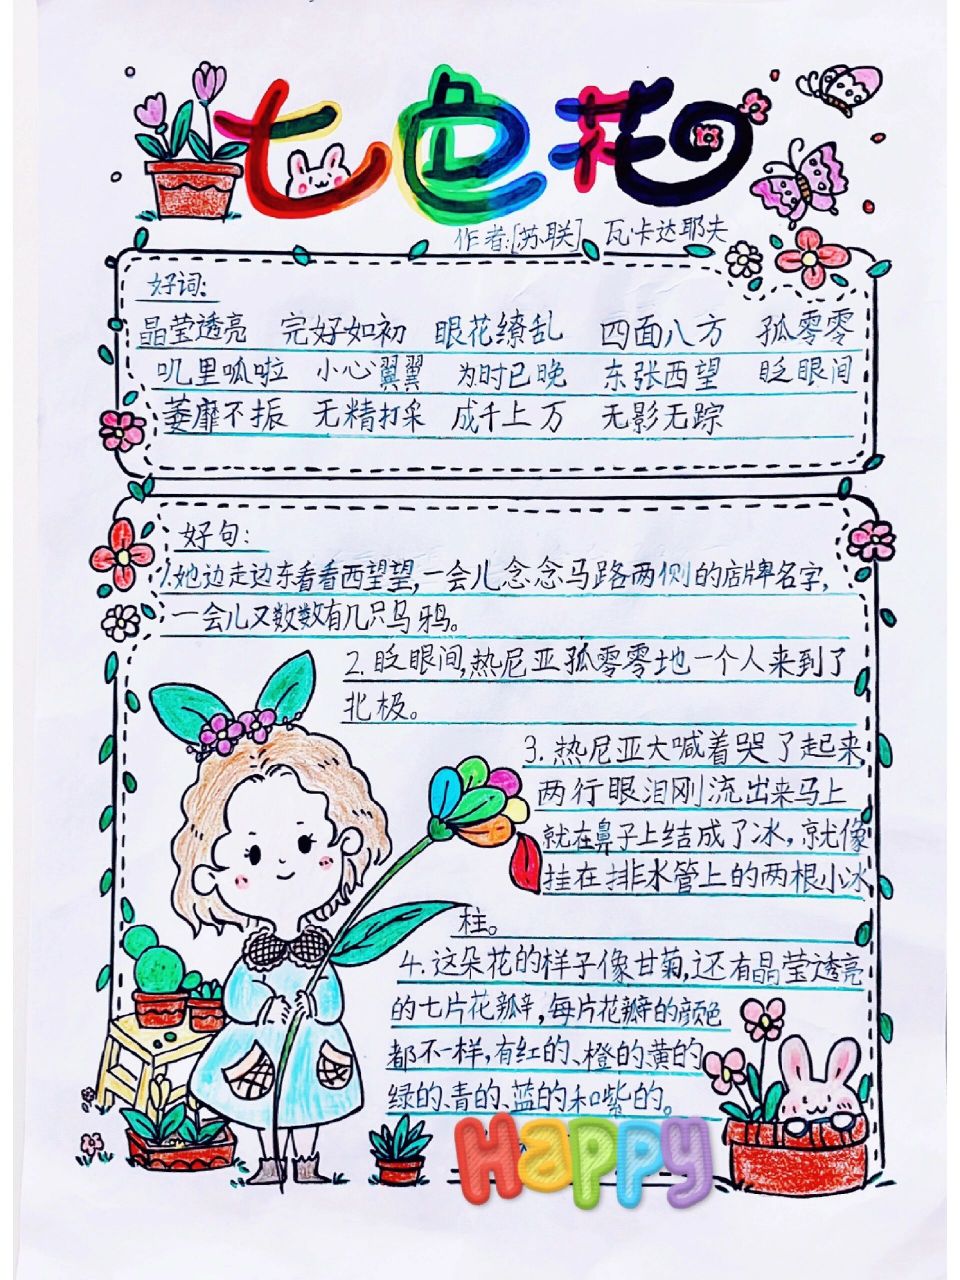 七色花
作者:[苏联] 瓦卡达耶夫
好词:
晶莹透亮 完好如初 眼花缭乱 四面八方 孤零零
叽里呱啦 小心翼翼 为时已晚 东张西望 眨眼间
萎靡不振 无精打采 成千上万 无影无踪
好句:
1.她边走边东看看西望望,一会儿念念马路两侧的店牌名字,
一会儿又数数有几只乌鸦。
2.眨眼间,热尼亚孤零零地一个人来到了
北极。
3.热尼亚大喊着哭了起来,
两行眼泪刚流出来马上
就在鼻子上结成了冰,就像
挂在排水管上的两根小冰
柱。
4.这朵花的样子像甘菊,还有晶莹透亮
的七片花瓣,每片花瓣的颜色
都不一样,有红的、橙的、黄的
绿的、青的、蓝的和紫的。
Happy